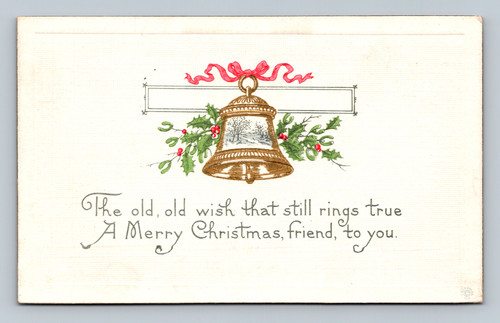 The old, old wish that still rings true
A Merry Christmas, friend, to you.